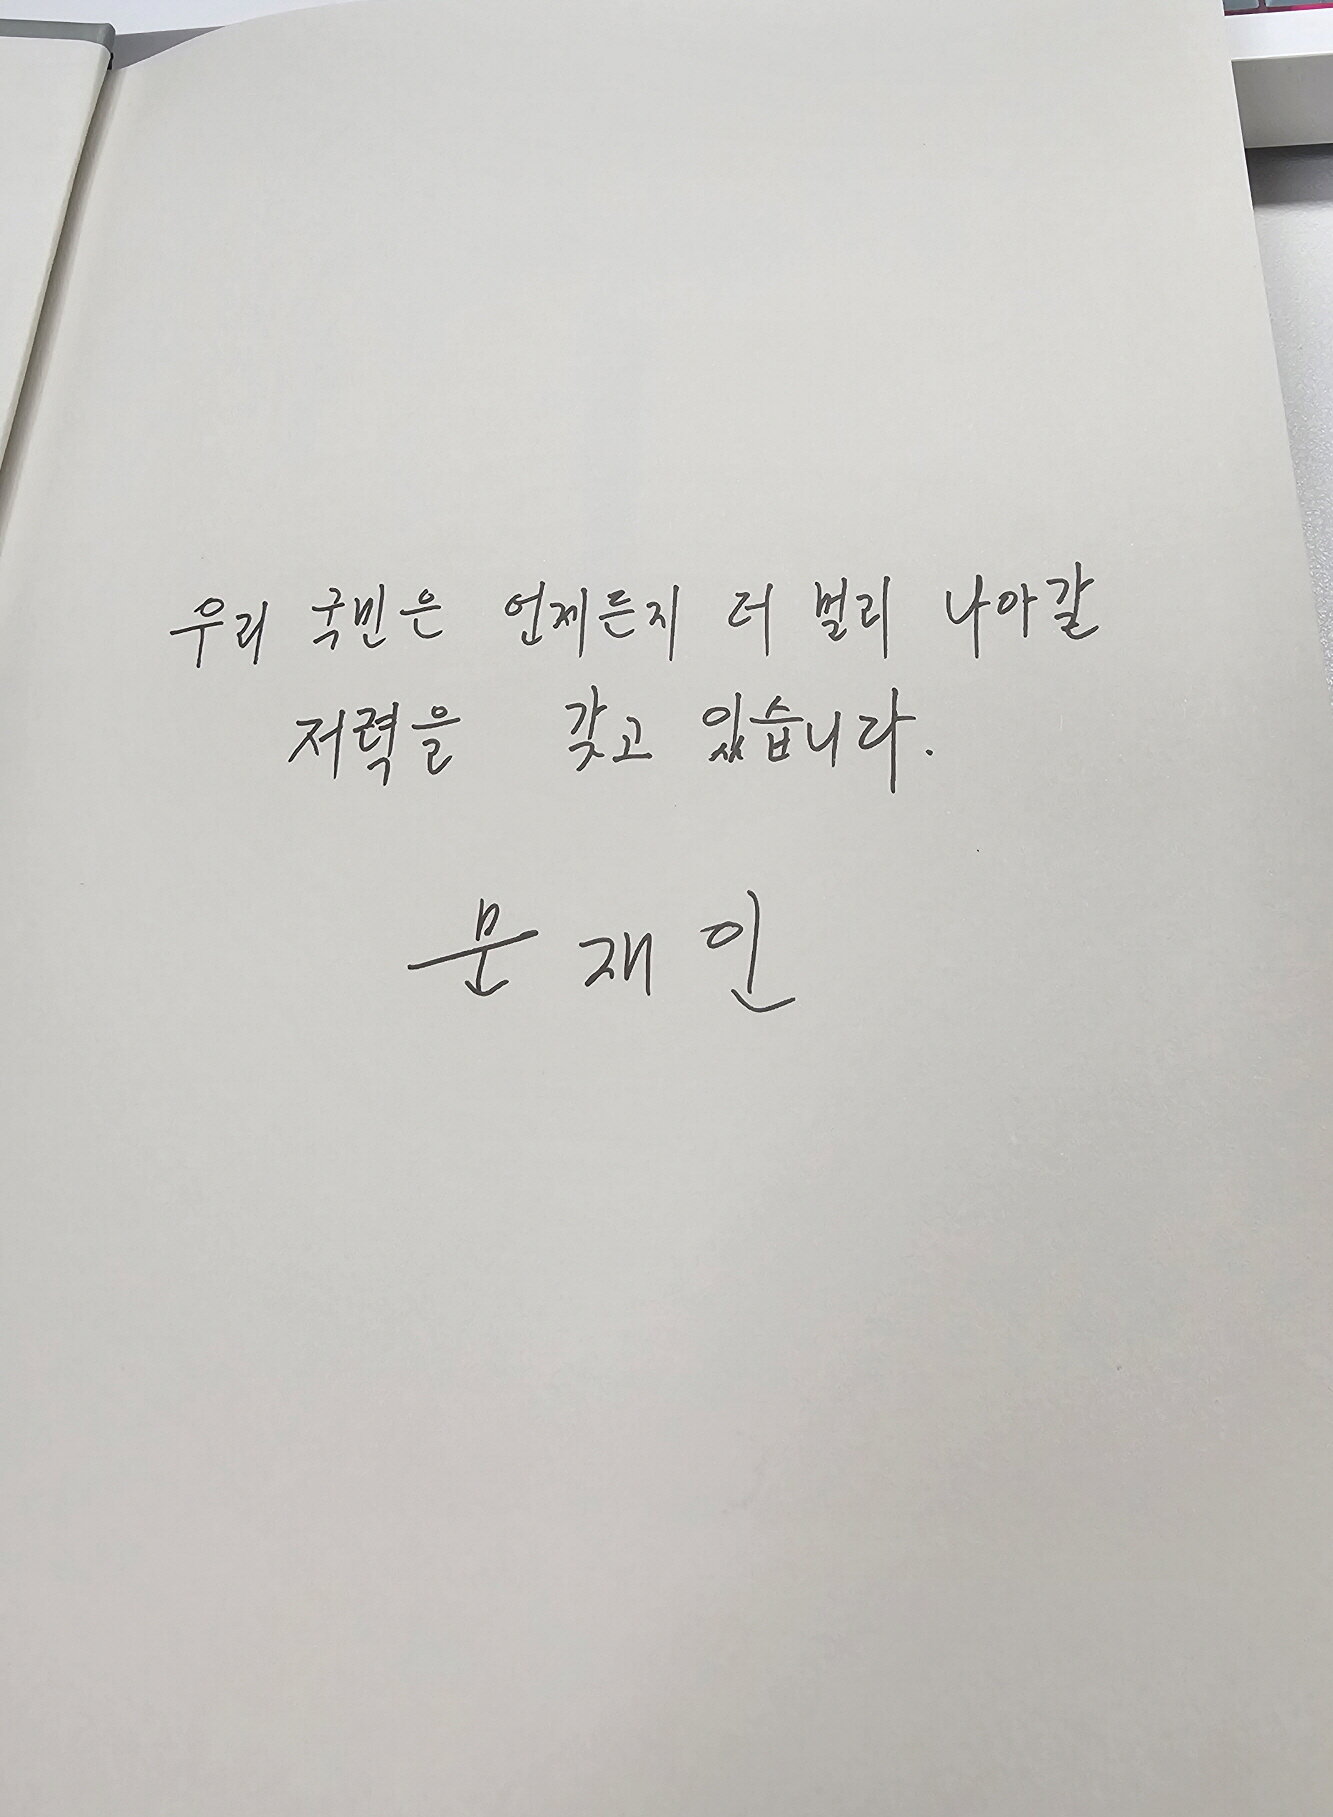 우리 국민은 언제든지 더 멀리 나아갈
저력을 갖고 있습니다.
문재인